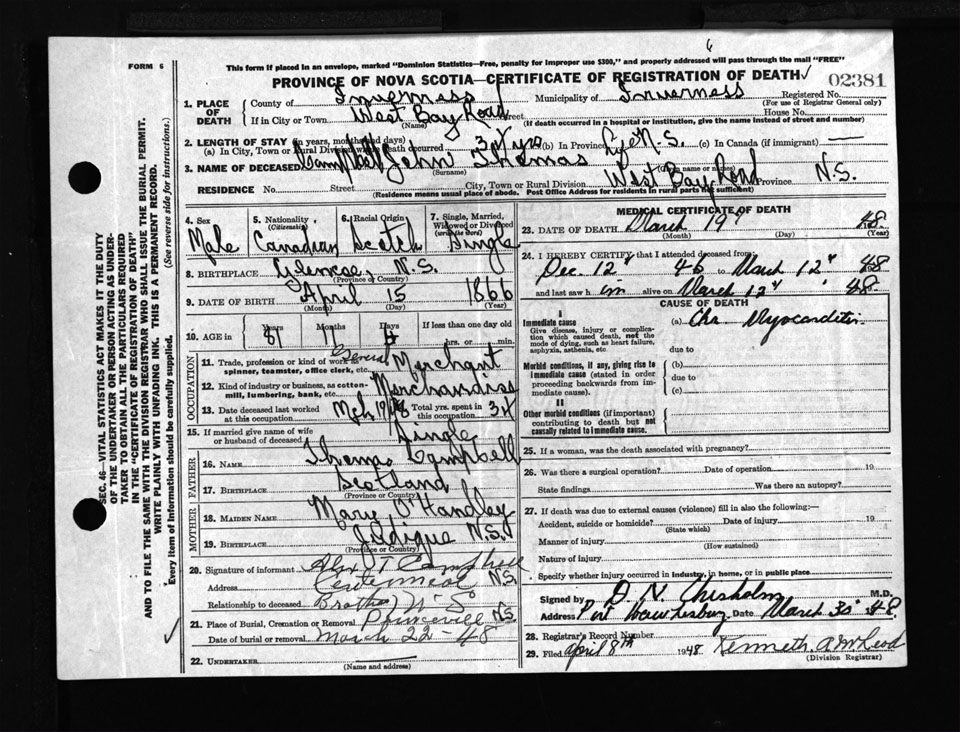 FORM 6
This form if placed in an envelope, marked "Dominion Statistics—Free, penalty for improper use $300," and properly addressed will pass through the mail "FREE"
PROVINCE OF NOVA SCOTIA—CERTIFICATE OF REGISTRATION OF DEATH
02381
1. PLACE OF DEATH
County of Inverness Municipality of Inverness Registered No.
(For use of Registrar General only)
If in City or Town West Bay Road Street House No.
(Name) (If death occurred in a hospital or institution, give the name instead of street and number)
2. LENGTH OF STAY (in years, months and days)
(a) In City, Town or Rural Division where death occurred yrs (b) In Province N.S. (c) In Canada (if immigrant) —
3. NAME OF DECEASED Campbell John Thomas
(Surname)
RESIDENCE No. Street City, Town or Rural Division West Bay Road Province N.S.
(Residence means usual place of abode. Post Office Address for residents in rural parts not sufficient)
4. Sex 5. Nationality (Citizenship) 6. Racial Origin 7. Single, Married, Widowed or Divorced (write the word)
Male Canadian Scotch Single
8. BIRTHPLACE Glencoe, N.S.
(Province or Country)
9. DATE OF BIRTH April 15 1866
(Month) (Day) (Year)
10. AGE in Years Months Days If less than one day old
81 11 hrs. or min.
OCCUPATION
11. Trade, profession or kind of work as spinner, teamster, office clerk, etc. General Merchant
12. Kind of industry or business, as cotton-mill, lumbering, bank, etc. Merchandise
13. Date deceased last worked at this occupation Mch 1948 Total yrs. spent in this occupation
15. If married give name of wife or husband of deceased Single
FATHER
16. NAME Thomas Campbell
17. BIRTHPLACE Scotland
(Province or Country)
MOTHER
18. MAIDEN NAME Mary O'Handley
19. BIRTHPLACE Judique N.S.
(Province or Country)
20. Signature of informant Alex J Campbell
Address Centennial N.S.
Relationship to deceased Brother
21. Place of Burial, Cremation or Removal Princeville N.S.
Date of burial or removal March 22-48
22. UNDERTAKER
(Name and address)
MEDICAL CERTIFICATE OF DEATH
23. DATE OF DEATH March 19 48
(Month) (Day) (Year)
24. I HEREBY CERTIFY that I attended deceased from:
Dec. 12" 46 to March 12" 48
and last saw h im alive on March 12" 48.
CAUSE OF DEATH
I
Immediate cause (a) Chr Myocarditis
Give disease, injury or complication which caused death, not the mode of dying, such as heart failure, asphyxia, asthenia, etc.
due to
Morbid conditions, if any, giving rise to immediate cause (stated in order proceeding backwards from immediate cause).
(b)
due to
(c)
II
Other morbid conditions (if important) contributing to death but not causally related to immediate cause.
25. If a woman, was the death associated with pregnancy?
26. Was there a surgical operation? Date of operation 19
State findings Was there an autopsy?
27. If death was due to external causes (violence) fill in also the following:—
Accident, suicide or homicide? Date of injury 19
(State which)
Manner of injury
(How sustained)
Nature of injury
Specify whether injury occurred in industry, in home, or in public place
Signed by D. N. Chisholm M.D.
Address Port Hawkesbury Date March 30 48
28. Registrar's Record Number
29. Filed April 8th 1948 Kenneth A McLeod
(Division Registrar)
SEC. 46—VITAL STATISTICS ACT MAKES IT THE DUTY
OF THE UNDERTAKER OR PERSON ACTING AS UNDER-
TAKER TO OBTAIN ALL THE PARTICULARS REQUIRED
IN THE "CERTIFICATE OF REGISTRATION OF DEATH"
AND TO FILE THE SAME WITH THE DIVISION REGISTRAR WHO SHALL ISSUE THE BURIAL PERMIT.
WRITE PLAINLY WITH UNFADING INK. THIS IS A PERMANENT RECORD.
Every item of Information should be carefully supplied. (See reverse side for instructions.)